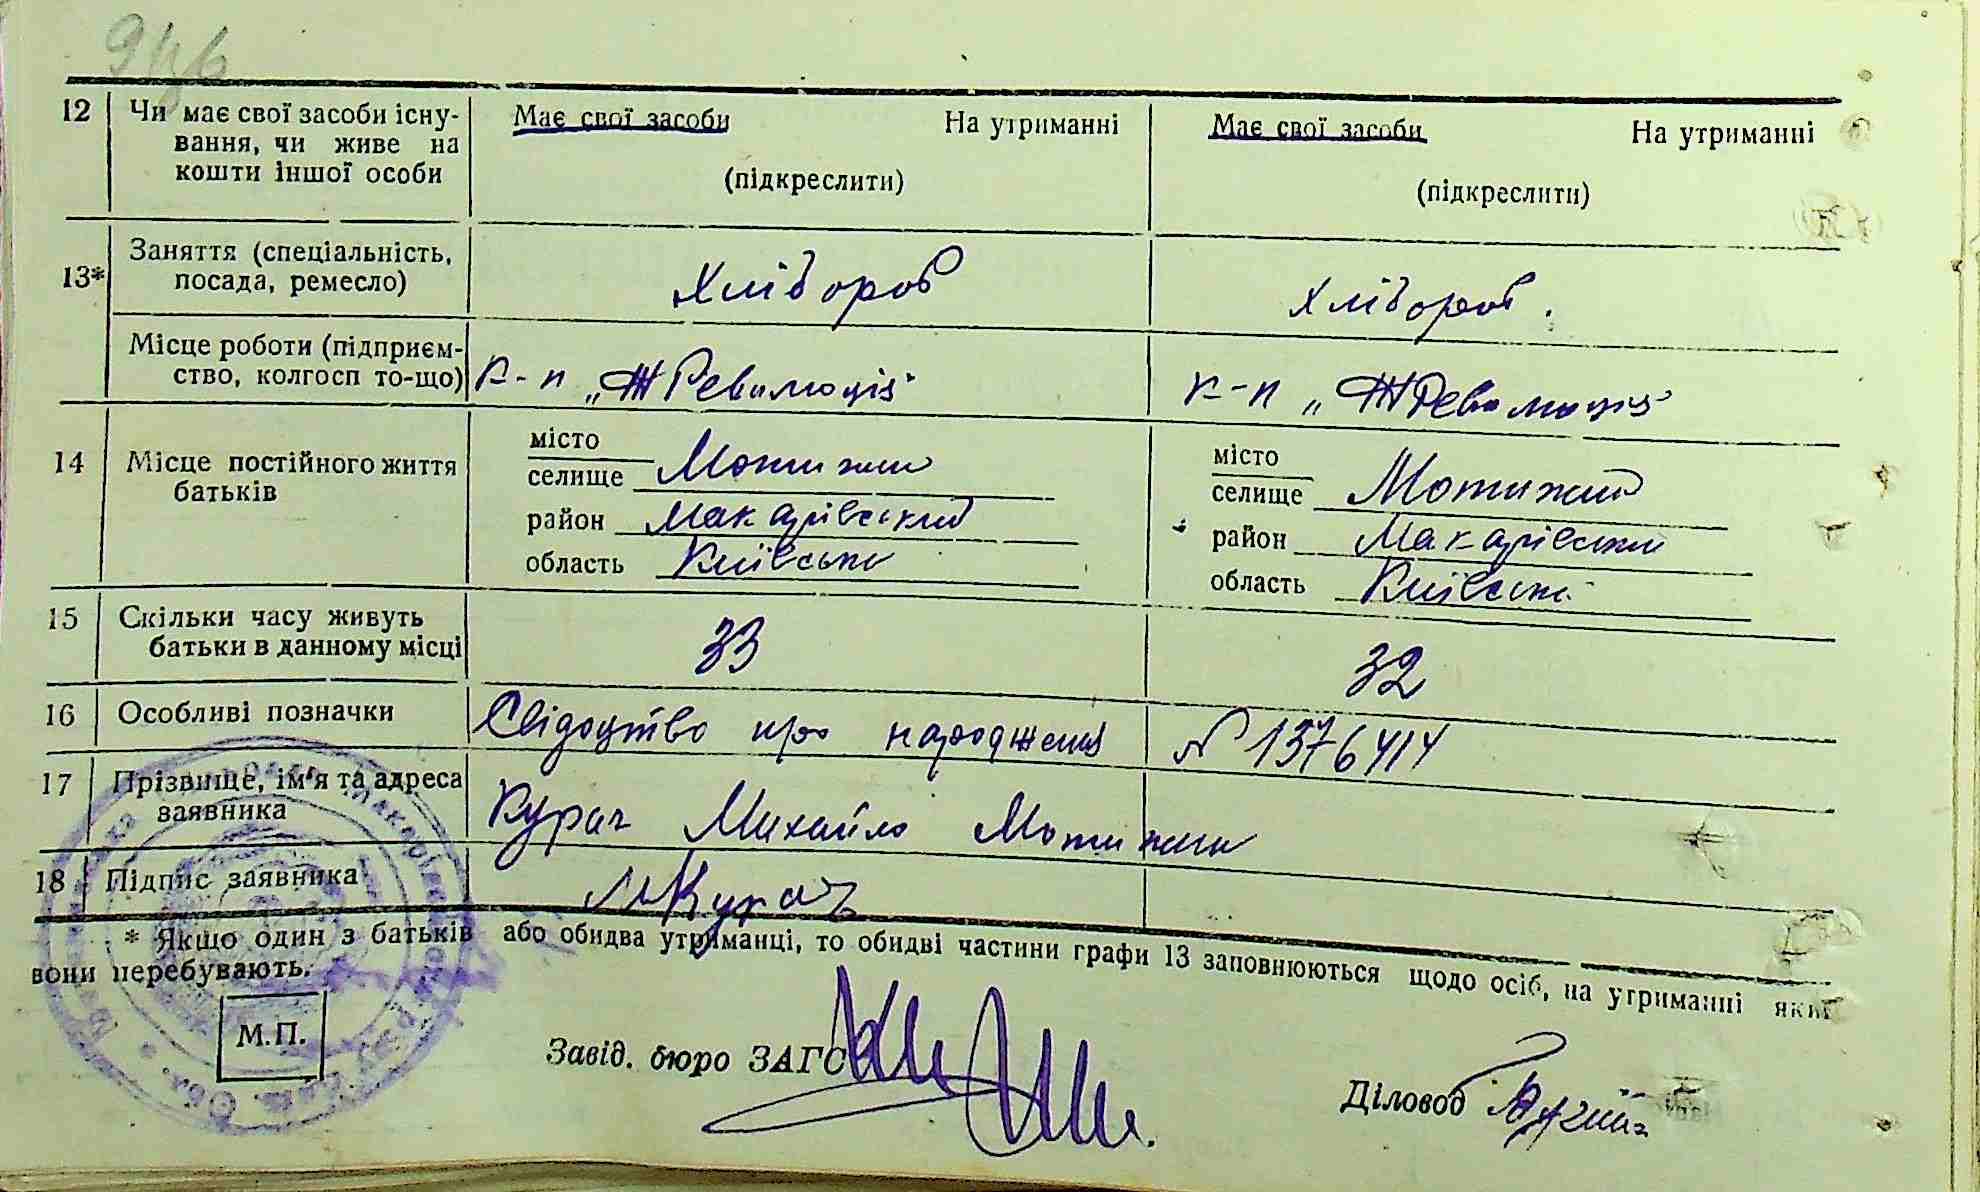 12 Чи має свої засоби існу- Має свої засоби На утриманні Має свої засоби На утриманні
вання, чи живе на
кошти іншої особи (підкреслити) (підкреслити)
13* Заняття (спеціальність,
посада, ремесло) Хлібороб Хлібороб.
Місце роботи (підприєм-
ство, колгосп то-що) к-п „ЖРеволюція" к-п „ЖРеволюція"
14 Місце постійного життя
батьків
місто місто
селище Мотижин селище Мотижин
район Макарівський район Макарівський
область Київська область Київська
15 Скільки часу живуть
батьки в данному місці 33 32
16 Особливі позначки Свідоцтво про народження № 1376414
17 Прізвище, ім'я та адреса
заявника Курач Михайло Мотижин
18 Підпис заявника МКурач
* Якщо один з батьків або обидва утриманці, то обидві частини графи 13 заповнюються щодо осіб, на утриманні яких
вони перебувають.
М.П.
Завід. бюро ЗАГС Діловод